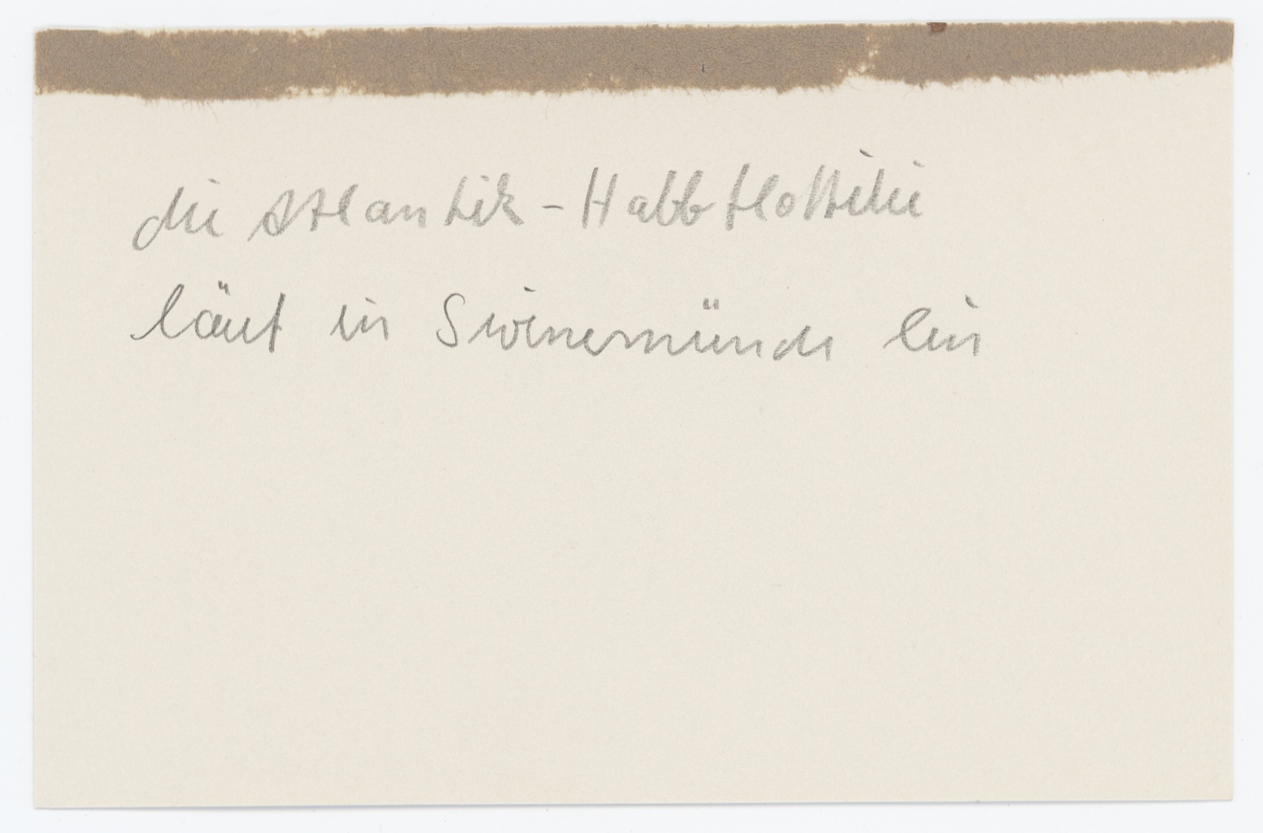 die Atlantik-Halbflottilie
läuf in Swinemünde ein